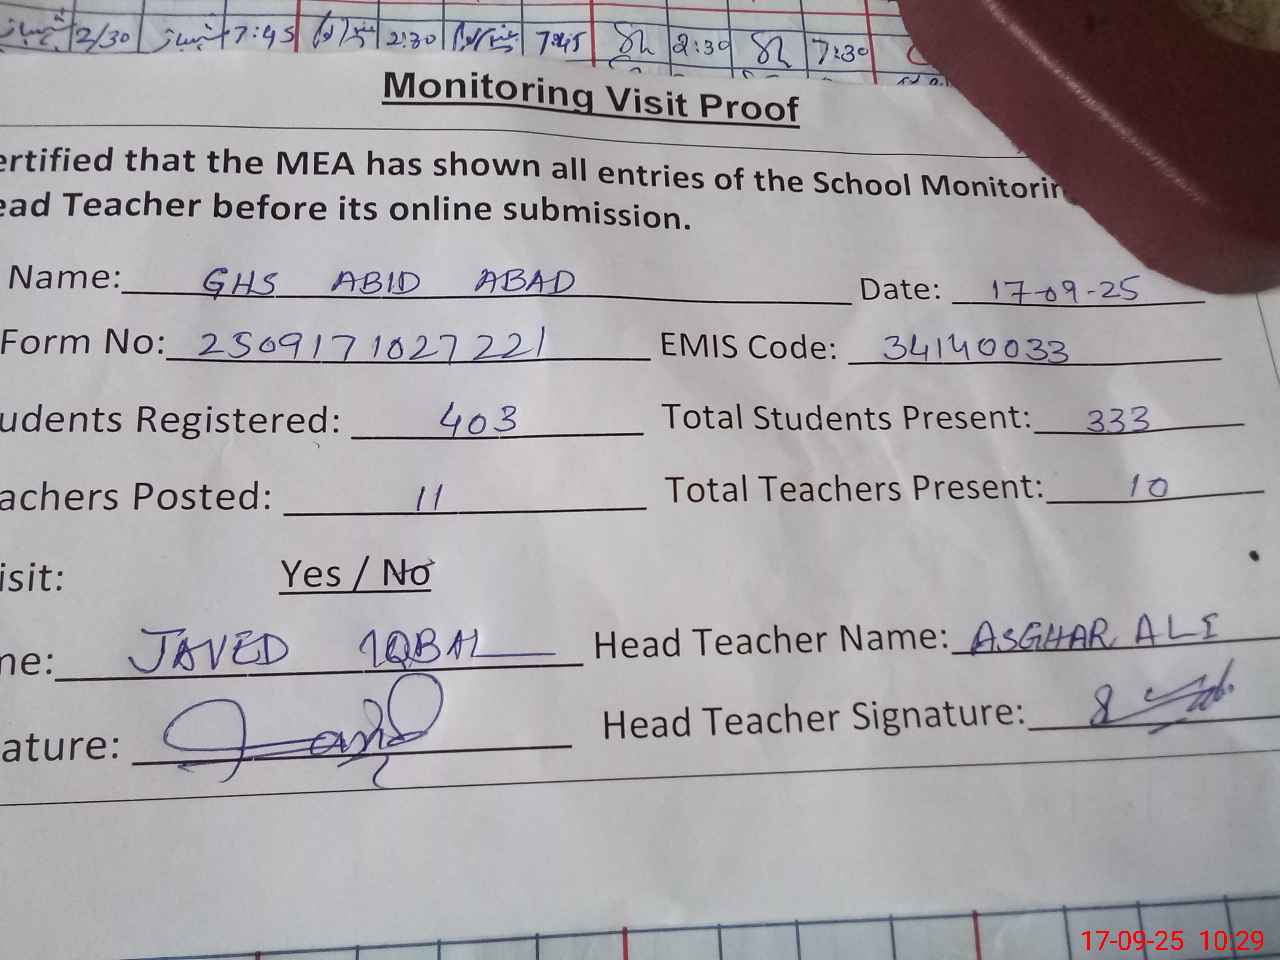 2/30 7:45 2:30 7:45 2:30 7:30
Monitoring Visit Proof
ertified that the MEA has shown all entries of the School Monitorin
ead Teacher before its online submission.
Name: GHS ABID ABAD Date: 17-09-25
Form No: 2509171027221 EMIS Code: 34140033
udents Registered: 403 Total Students Present: 333
achers Posted: 11 Total Teachers Present: 10
isit: Yes / No
ne: JAVED IQBAL Head Teacher Name: ASGHAR ALI
ature: Head Teacher Signature:
17-09-25 10:29